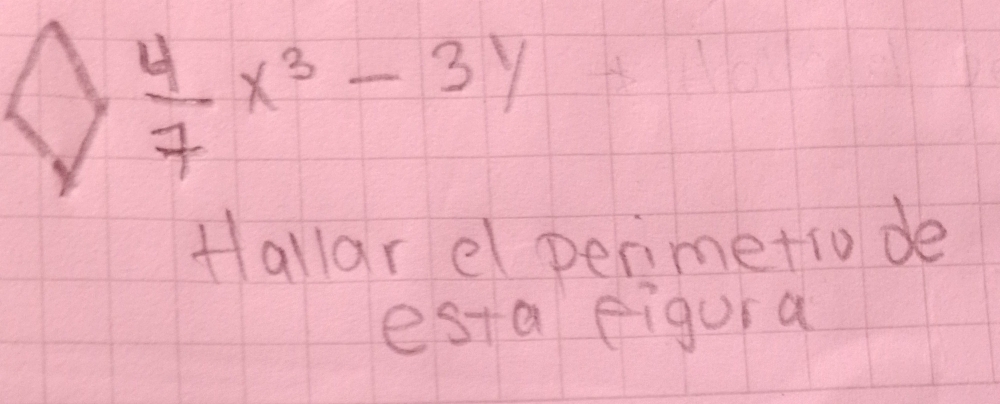 4/7 x³ - 3y
Hallar el perimetro de
esta figura